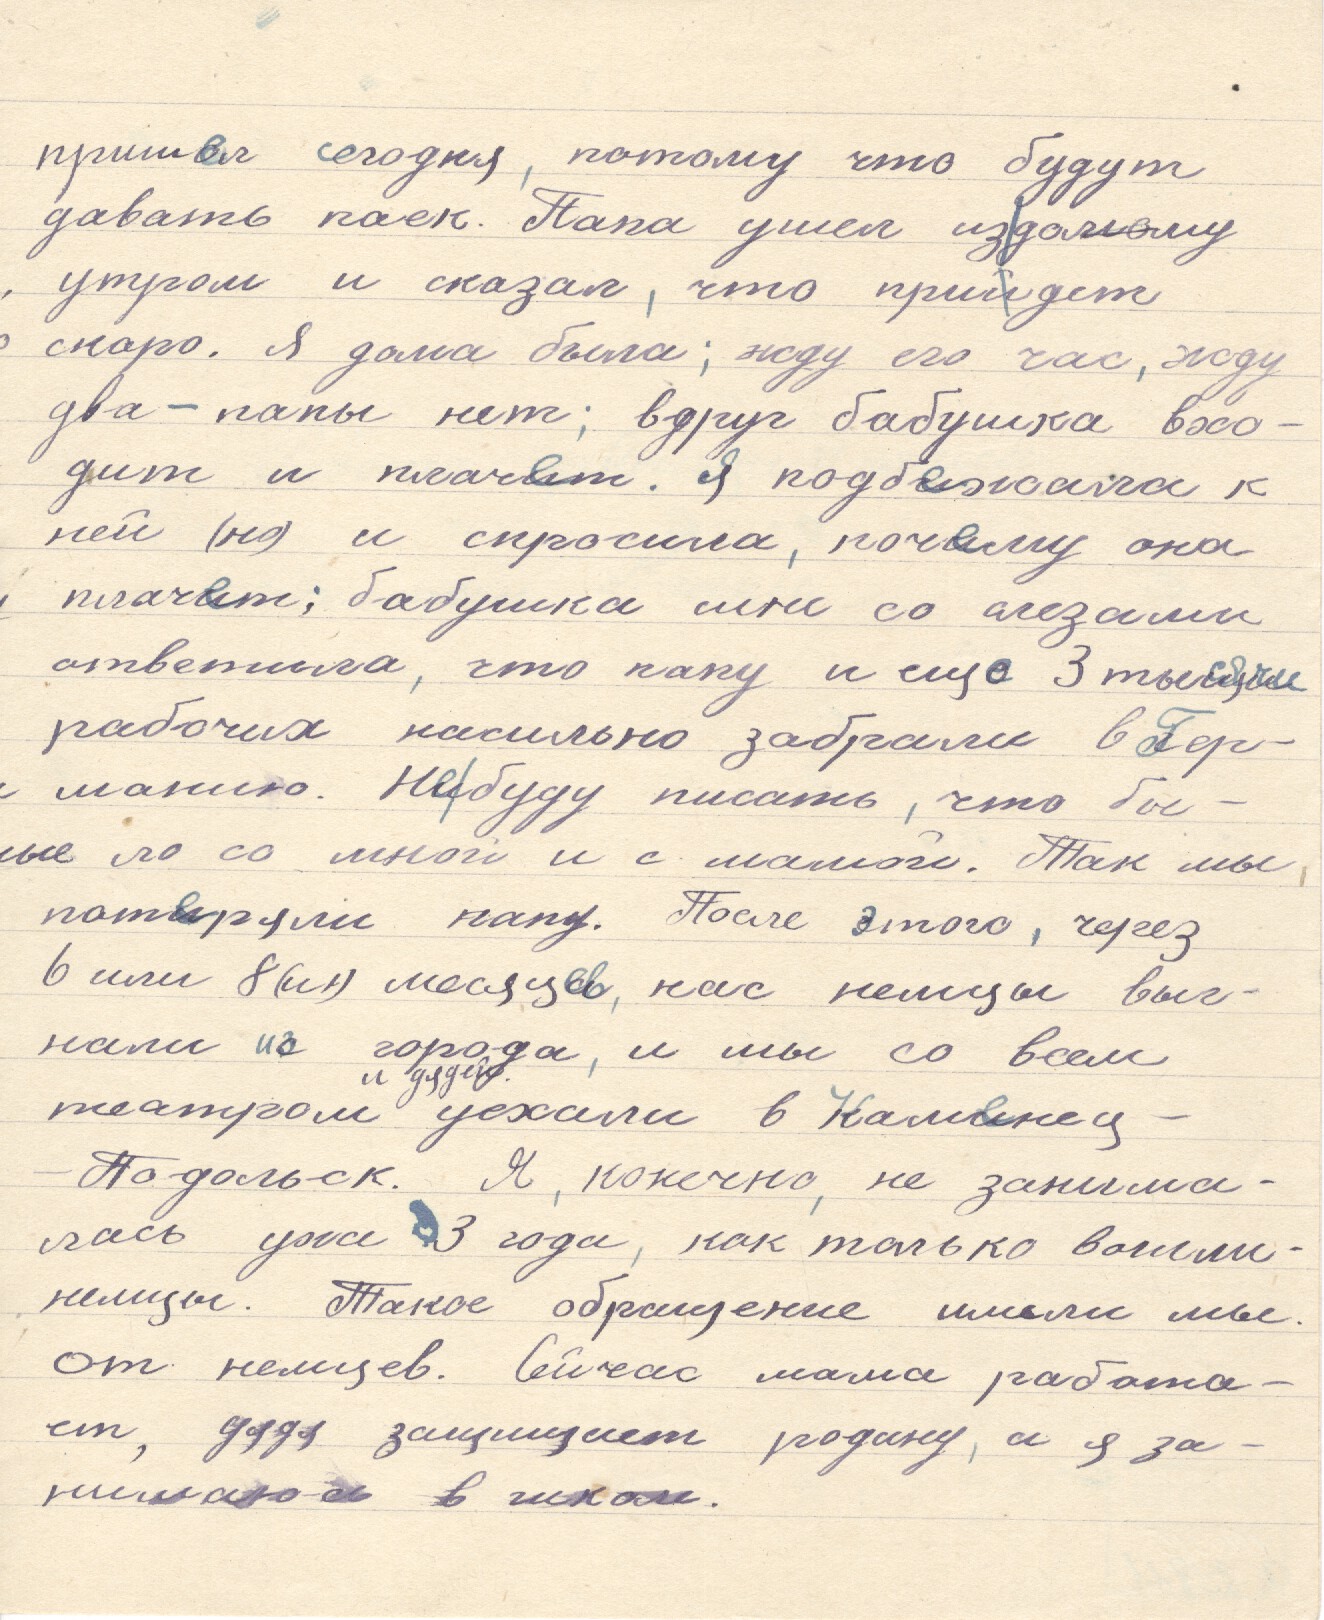 пришел сегодня, потому что будут
давать паек. Папа ушел из дому
, утром и сказал, что прийдет
скоро. Я дома была; жду его час, жду
два – папы нет; вдруг бабушка вхо-
дит и плачет. Я подбежала к
ней (не) и спросила, почему она
плачет; бабушка мне со слезами
ответила, что папу и еще 3 тысячи
рабочих насильно забрали в Гер-
манию. Не буду писать, что бы-
ло со мной и с мамой. Так мы
потеряли папу. После этого, через
6 или 8 (ил) месяцев, нас немцы выг-
нали из города, и мы со всем
и дядей
театром уехали в Каменец-
-Подольск. Я, конечно, не занима-
лась уже 3 года, как только вошли
немцы. Такое обращение имели мы
от немцев. Сейчас мама работа-
ет, дядя защищает родину, а я за-
нимаюсь в школе.